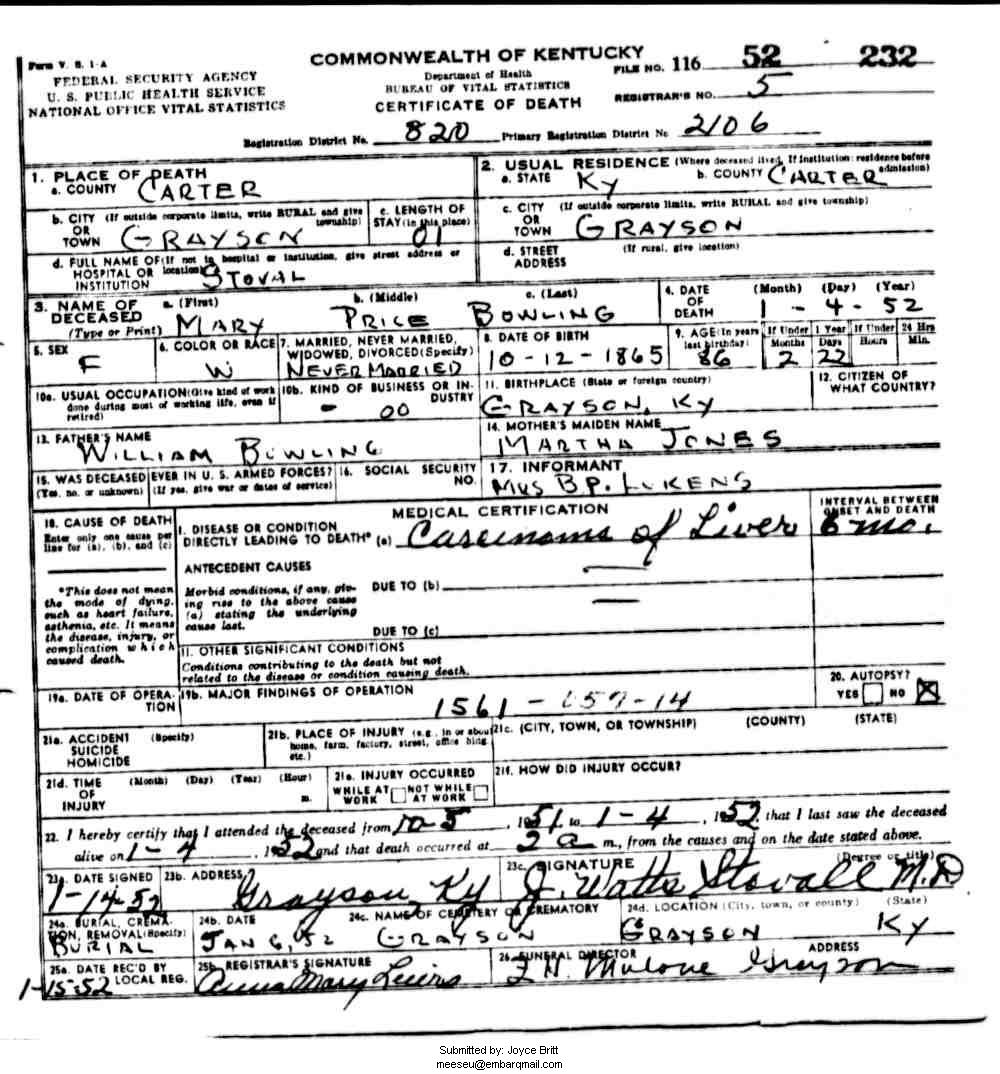 Form V. S. 1-A
FEDERAL SECURITY AGENCY
U. S. PUBLIC HEALTH SERVICE
NATIONAL OFFICE VITAL STATISTICS
COMMONWEALTH OF KENTUCKY
Department of Health
BUREAU OF VITAL STATISTICS
CERTIFICATE OF DEATH
FILE NO. 116 52 232
REGISTRAR'S NO. 5
Registration District No. 820 Primary Registration District No 2106
1. PLACE OF DEATH
a. COUNTY CARTER
2. USUAL RESIDENCE (Where deceased lived. If institution: residence before admission)
a. STATE Ky b. COUNTY CARTER
b. CITY (If outside corporate limits, write RURAL and give township)
OR
TOWN GRAYSON
c. LENGTH OF
STAY (in this place)
01
c. CITY (If outside corporate limits, write RURAL and give township)
OR
TOWN GRAYSON
d. FULL NAME OF (If not in hospital or institution, give street address or location)
HOSPITAL OR
INSTITUTION STOVAL
d. STREET (If rural, give location)
ADDRESS
3. NAME OF DECEASED
(Type or Print)
a. (First) MARY
b. (Middle) PRICE
c. (Last) BOWLING
4. DATE OF DEATH (Month) (Day) (Year)
1 - 4 - 52
5. SEX
F
6. COLOR OR RACE
W
7. MARRIED, NEVER MARRIED,
WIDOWED, DIVORCED (Specify)
NEVER MARRIED
8. DATE OF BIRTH
10-12-1865
9. AGE (In years last birthday)
86
If Under 1 Year
Months 2 Days 22
If Under 24 Hrs
Hours Min.
10a. USUAL OCCUPATION (Give kind of work
done during most of working life, even if
retired)
10b. KIND OF BUSINESS OR INDUSTRY
- 00
11. BIRTHPLACE (State or foreign country)
GRAYSON, KY
12. CITIZEN OF
WHAT COUNTRY?
13. FATHER'S NAME
WILLIAM BOWLING
14. MOTHER'S MAIDEN NAME
MARTHA JONES
15. WAS DECEASED EVER IN U. S. ARMED FORCES?
(Yes, no, or unknown) (If yes, give war or dates of service)
16. SOCIAL SECURITY
NO.
17. INFORMANT
MRS B.P. LUKENS
18. CAUSE OF DEATH
Enter only one cause per
line for (a), (b), and (c)
*This does not mean
the mode of dying,
such as heart failure,
asthenia, etc. It means
the disease, injury, or
complication which
caused death.
MEDICAL CERTIFICATION
INTERVAL BETWEEN
ONSET AND DEATH
I. DISEASE OR CONDITION
DIRECTLY LEADING TO DEATH* (a) Carcinoma of Liver 6 mo.
ANTECEDENT CAUSES
Morbid conditions, if any, giving rise to the above cause
(a) stating the underlying
cause last.
DUE TO (b)
DUE TO (c)
II. OTHER SIGNIFICANT CONDITIONS
Conditions contributing to the death but not
related to the disease or condition causing death.
19a. DATE OF OPERATION
19b. MAJOR FINDINGS OF OPERATION
1561 - 14
20. AUTOPSY?
YES NO X
21a. ACCIDENT (Specify)
SUICIDE
HOMICIDE
21b. PLACE OF INJURY (e.g., in or about
home, farm, factory, street, office bldg.
etc.)
21c. (CITY, TOWN, OR TOWNSHIP) (COUNTY) (STATE)
21d. TIME OF INJURY (Month) (Day) (Year) (Hour) m.
21e. INJURY OCCURRED
WHILE AT WORK NOT WHILE AT WORK
21f. HOW DID INJURY OCCUR?
22. I hereby certify that I attended the deceased from 10-5, 1951, to 1-4, 1952 that I last saw the deceased
alive on 1-4, 1952 and that death occurred at 2 a m., from the causes and on the date stated above.
23a. DATE SIGNED
1-14-52
23b. ADDRESS
Grayson, Ky
23c. SIGNATURE (Degree or title)
J. Watts Stovall M.D
24a. BURIAL, CREMATION, REMOVAL (Specify)
BURIAL
24b. DATE
JAN 6, 52
24c. NAME OF CEMETERY OR CREMATORY
GRAYSON
24d. LOCATION (City, town, or county) (State)
GRAYSON KY
25a. DATE REC'D BY
LOCAL REG.
1-15-52
25b. REGISTRAR'S SIGNATURE
Anna Mary Lewis
26. FUNERAL DIRECTOR ADDRESS
Malone Grayson
Submitted by: Joyce Britt
meeseu@embarqmail.com